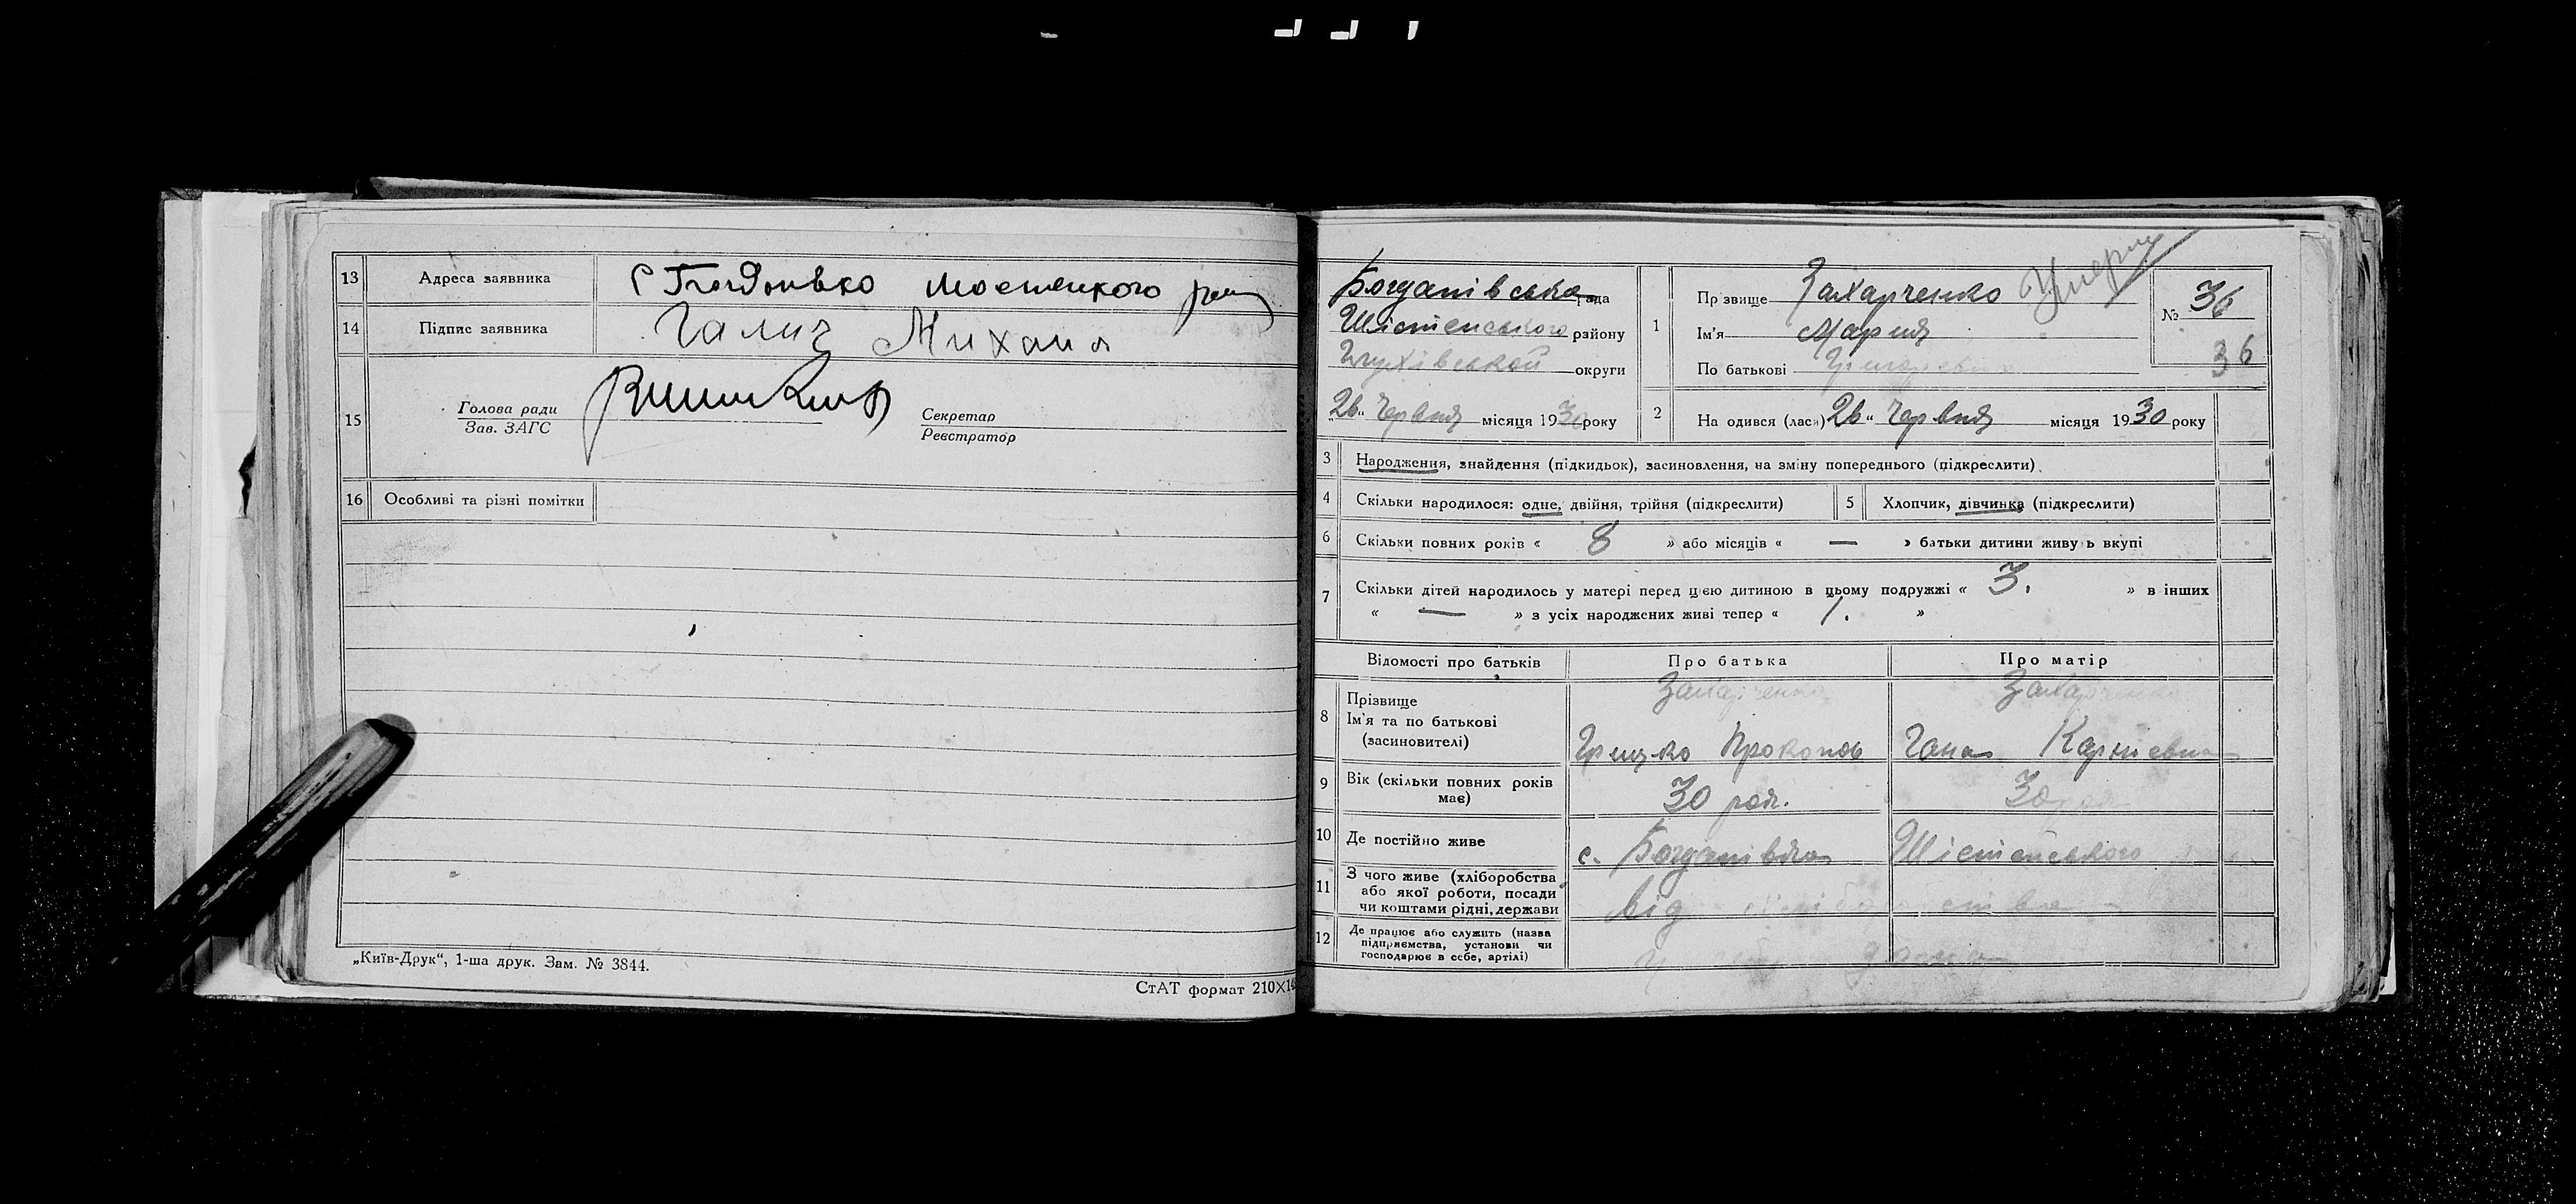 13 Адреса заявника с Богдонивко Шостенкого рай
14 Підпис заявника Галич Михаил
15 Голова ради
Зав. ЗАГС
Секретар
Реєстратор
16 Особливі та різні помітки
„Київ-Друк“, 1-ша друк. Зам. № 3844.
СтАТ формат 210X1
Богданівська рада
Шістенського району
Глухівської округи
26 “ Червня місяця 1930 року
1 Пр звище Захарченко
Ім’я Мария
По батькові
Умерла
№ 36
36
2 На одився (лася) 26 “ Червня місяця 1930 року
3 Народження, знайдення (підкидьок), засиновлення, на зміну попереднього (підкреслити).
4 Скільки народилося: одне, двійня, трійня (підкреслити)
5 Хлопчик, дівчинка (підкреслити)
6 Скільки повних років « 8 » або місяців « — » батьки дитини живу ь вкупі
7 Скільки дітей народилось у матері перед цією дитиною в цьому подружжі « 3. » в інших
« — » з усіх народжених живі тепер « 1. »
Відомості про батьків Про батька Про матір
8 Прізвище
Ім’я та по батькові
(засиновителі)
Захарченко
Грицко Прокопов
Захарченко
Гана Карпіевна
9 Вік (скільки повних років
має)
30 рок.
30
10 Де постійно живе с. Богданівка Шістенського
11 З чого живе (хліборобства
або якої роботи, посади
чи коштами рідні, держави
від
12 Де працює або служить (назва
підприємства, установи чи
господарює в себе, артілі)